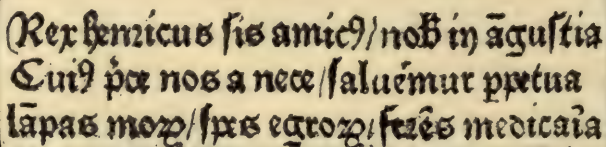 Rex henricus sis amicꝰ/ nob̄ in āgustia
Cuiꝰ p̄ce nos a nece/ saluēmur ꝑpetua
lāpas moꝝ/ spes egroꝝ/ ferēs medicaīa